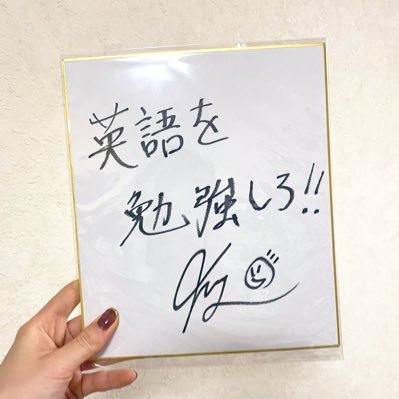 英語を
勉強しろ!!